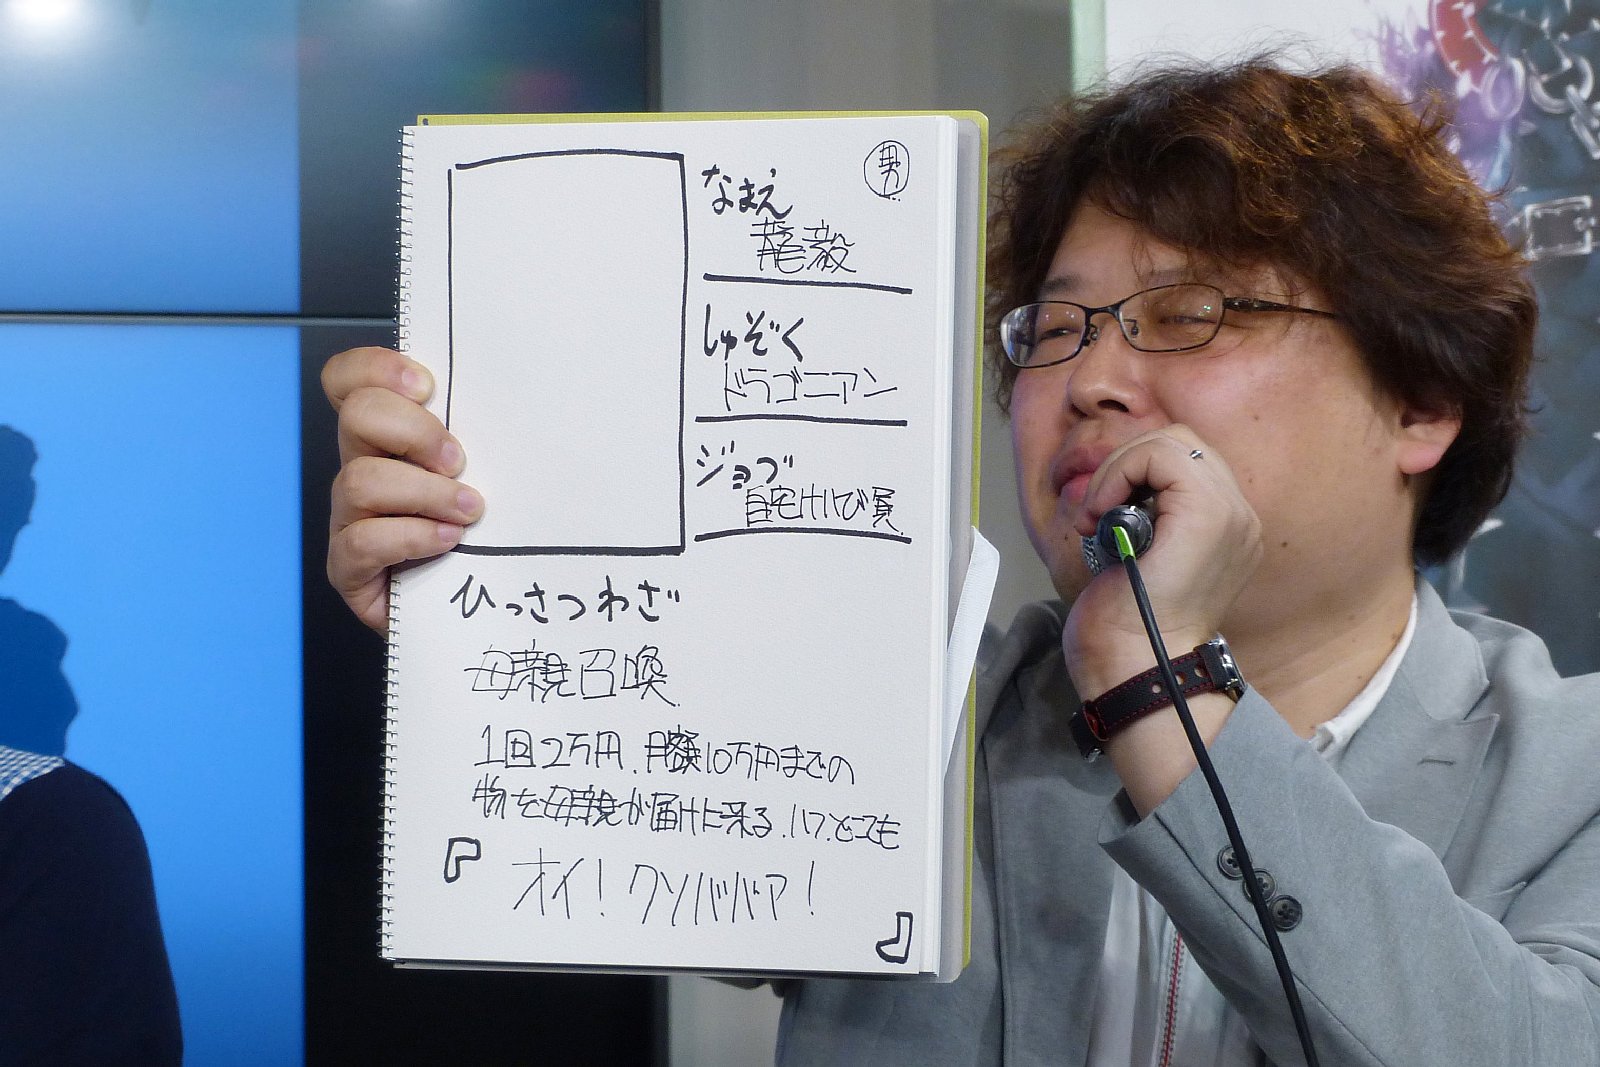 男
なまえ
龍毅
しゅぞく
ドラゴニアン
ジョブ
自宅けいび員
ひっさつわざ
母親召喚
1回2万円、月額10万円までの
物を母親が届けに来る。
『オイ!クソババア!』